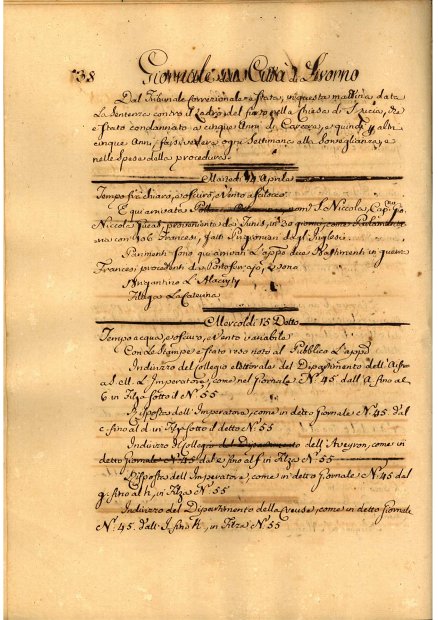 38 Giornale Città di Livorno
Dal Tribunale Correzionale è stata, in questa mattina data
La Sentenza contro il Ladro del furto nella Chiesa di S.
è stato condannato a cinque Anni di Carcere, e quindi p altri
cinque Anni, farsi vedere ogni Settimana alla Sorveglianza, e
nelle Spese della procedura.
Martedì 14 Aprile
Tempo fra chiaro, e oscuro, e Vento a Scilocco
È qui arrivata nom. S. Niccola, Cap.
Niccola provenienta da Tunis, in 30 giorni, come
ria con 106 Francesi, fatti Prigionieri dagl'Inglesi
Parimenti sono qui arrivati L'app.o due Bastimenti in guerra
Francesi procedenti da Portoferrajo, e sono
Brigantino L'
Filuga La Caterina
Mercoldì 15 Detto
Tempo acqua, e oscuro, e Vento variabile
Con le Stampe è stato reso noto al Pubblico L'app.o
Indirizzo del Collegio elettorale del Dipartimento dell'
a S. M. L'Imperatore, come nel Giornale N.º 45. dall'A. fino al
6 in Filza sotto d N.º 55
Risposta dell'Imperatore, come in detto Giornale N.º 45. dal
c. fino al d. in Filza sotto d detto N.º 55
Indirizzo d Collegio del Dipartimento dell'Aveyron, come in
detto Giornale N.º 45 dal e fino al f in Filza N.º 55
Risposta dell'Imperatore, come in detto Giornale N.º 45 dal
g. fino al h, in Filza N.º 55
Indirizzo del Dipartimento della Creusa, come in detto Giornale
N.º 45. dall'I. fino K, in Filza N.º 55